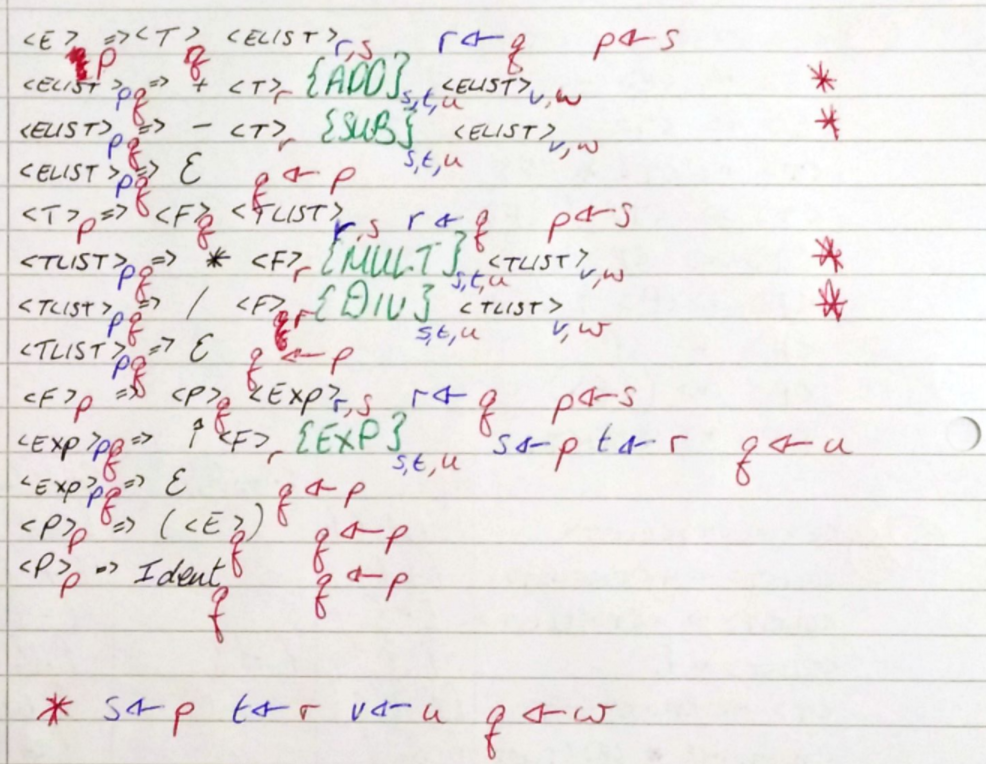 <E>p => <T>q <ELIST>r,s r ← q p ← s
<ELIST>p q => + <T>r {ADD}s,t,u <ELIST>v,w *
<ELIST>p q => - <T>r {SUB}s,t,u <ELIST>v,w *
<ELIST>p q => ε q ← p
<T>p => <F>q <TLIST>r,s r ← q p ← s
<TLIST>p q => * <F>r {MULT}s,t,u <TLIST>v,w *
<TLIST>p q => / <F>r {DIV}s,t,u <TLIST>v,w *
<TLIST>p q => ε q ← p
<F>p => <P>q <EXP>r,s r ← q p ← s
<EXP>p q => ↑ <F>r {EXP}s,t,u s ← p t ← r q ← u
<EXP>p q => ε q ← p
<P>p => (<E>q) q ← p
<P>p => Ident q q ← p
* s ← p t ← r v ← u q ← w